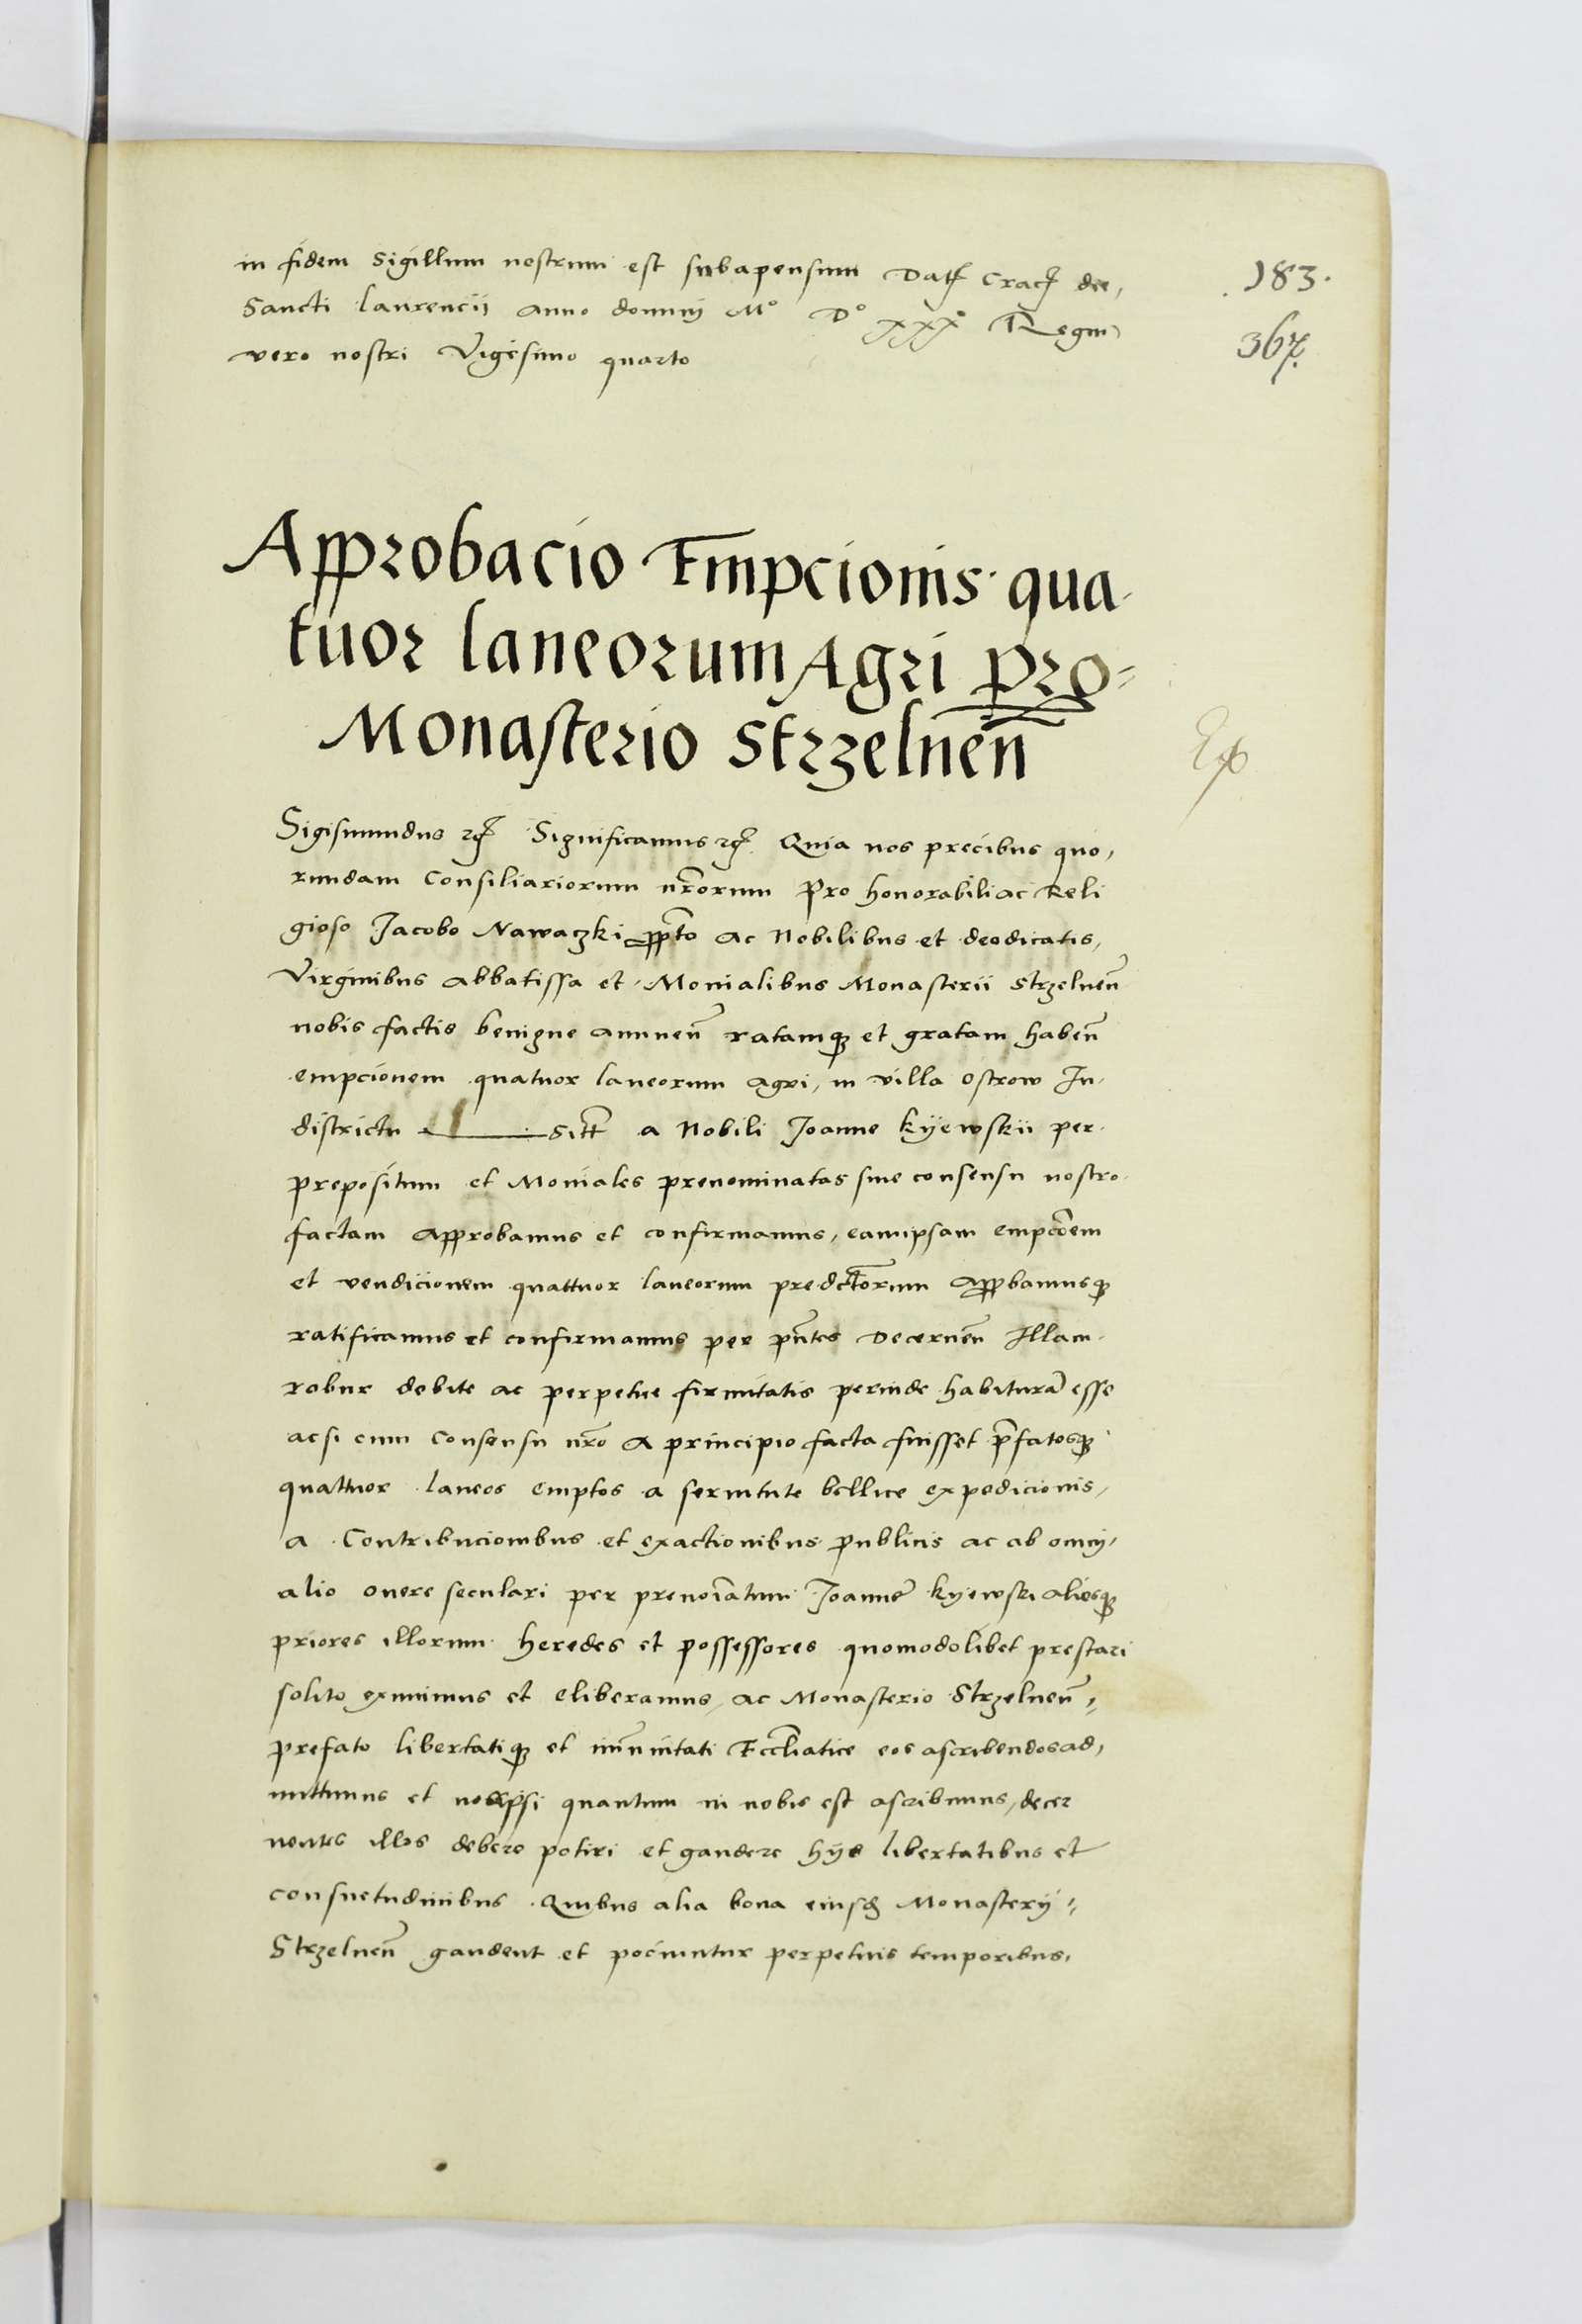 in fidem sigillum nostrum est subapensum Dat Crac die,
183.
Sancti laurencii anno domini M° D° xxx° Regni
367.
vero nostri Vigesimo quarto
Approbacio Empcionis qua-
tuor laneorum Agri pro-
Monasterio Strzelnen̄
Sigismundus Significamus Quia nos precibus quo,
rundam Consiliariorum nr̄orum pro honorabili ac Reli
gioso Jacobo Nawaczki ppt̄o ac Nobilibus et deodicatis,
Virginibus abbatissa et Monialibus Monasterii Strzelnen̄
nobis factis benigne annuen̄ ratamq et gratam haben̄
empcionem quatuor laneorum agri, in villa Ostrow In
districtu sitt̄ a Nobili Joanne Kyewskii per
prepositum et Moniales prenominatas sine consensu nostro
factam approbamus et confirmamus, eamipsam empcōem
et vendicionem quattuor laneorum predct̄orum appbamusq
ratificamus et confirmamus per pn̄tes Decernen̄ Illam
robur debite ac perpetue firmitatis perinde habiturā esse
acsi cum consensu nr̄o a principio facta fuisset p̄fatosq
quattuor laneos emptos a seruitute bellice expedicionis,
a Contribucionibus et exactionibus publicis ac ab omni,
alio onere seculari per prenoīatum Joannē Kyewski aliosq
priores illorum heredes et possessores quomodolibet prestari
solito eximimus et eliberamus, ac Monasterio Strzelnen̄,
prefato libertatiq et imūnitati Eccl̄iatice eos ascribendos ad,
mittimus et nosipsi quantum in nobis est ascribimus, decer
nentes illos debere potiri et gaudere hys libertatibus et
consuetudinibus Quibus alia bona eiusd Monastery,
Strzelnen̄ gaudent et pociuntur perpetuis temporibus,